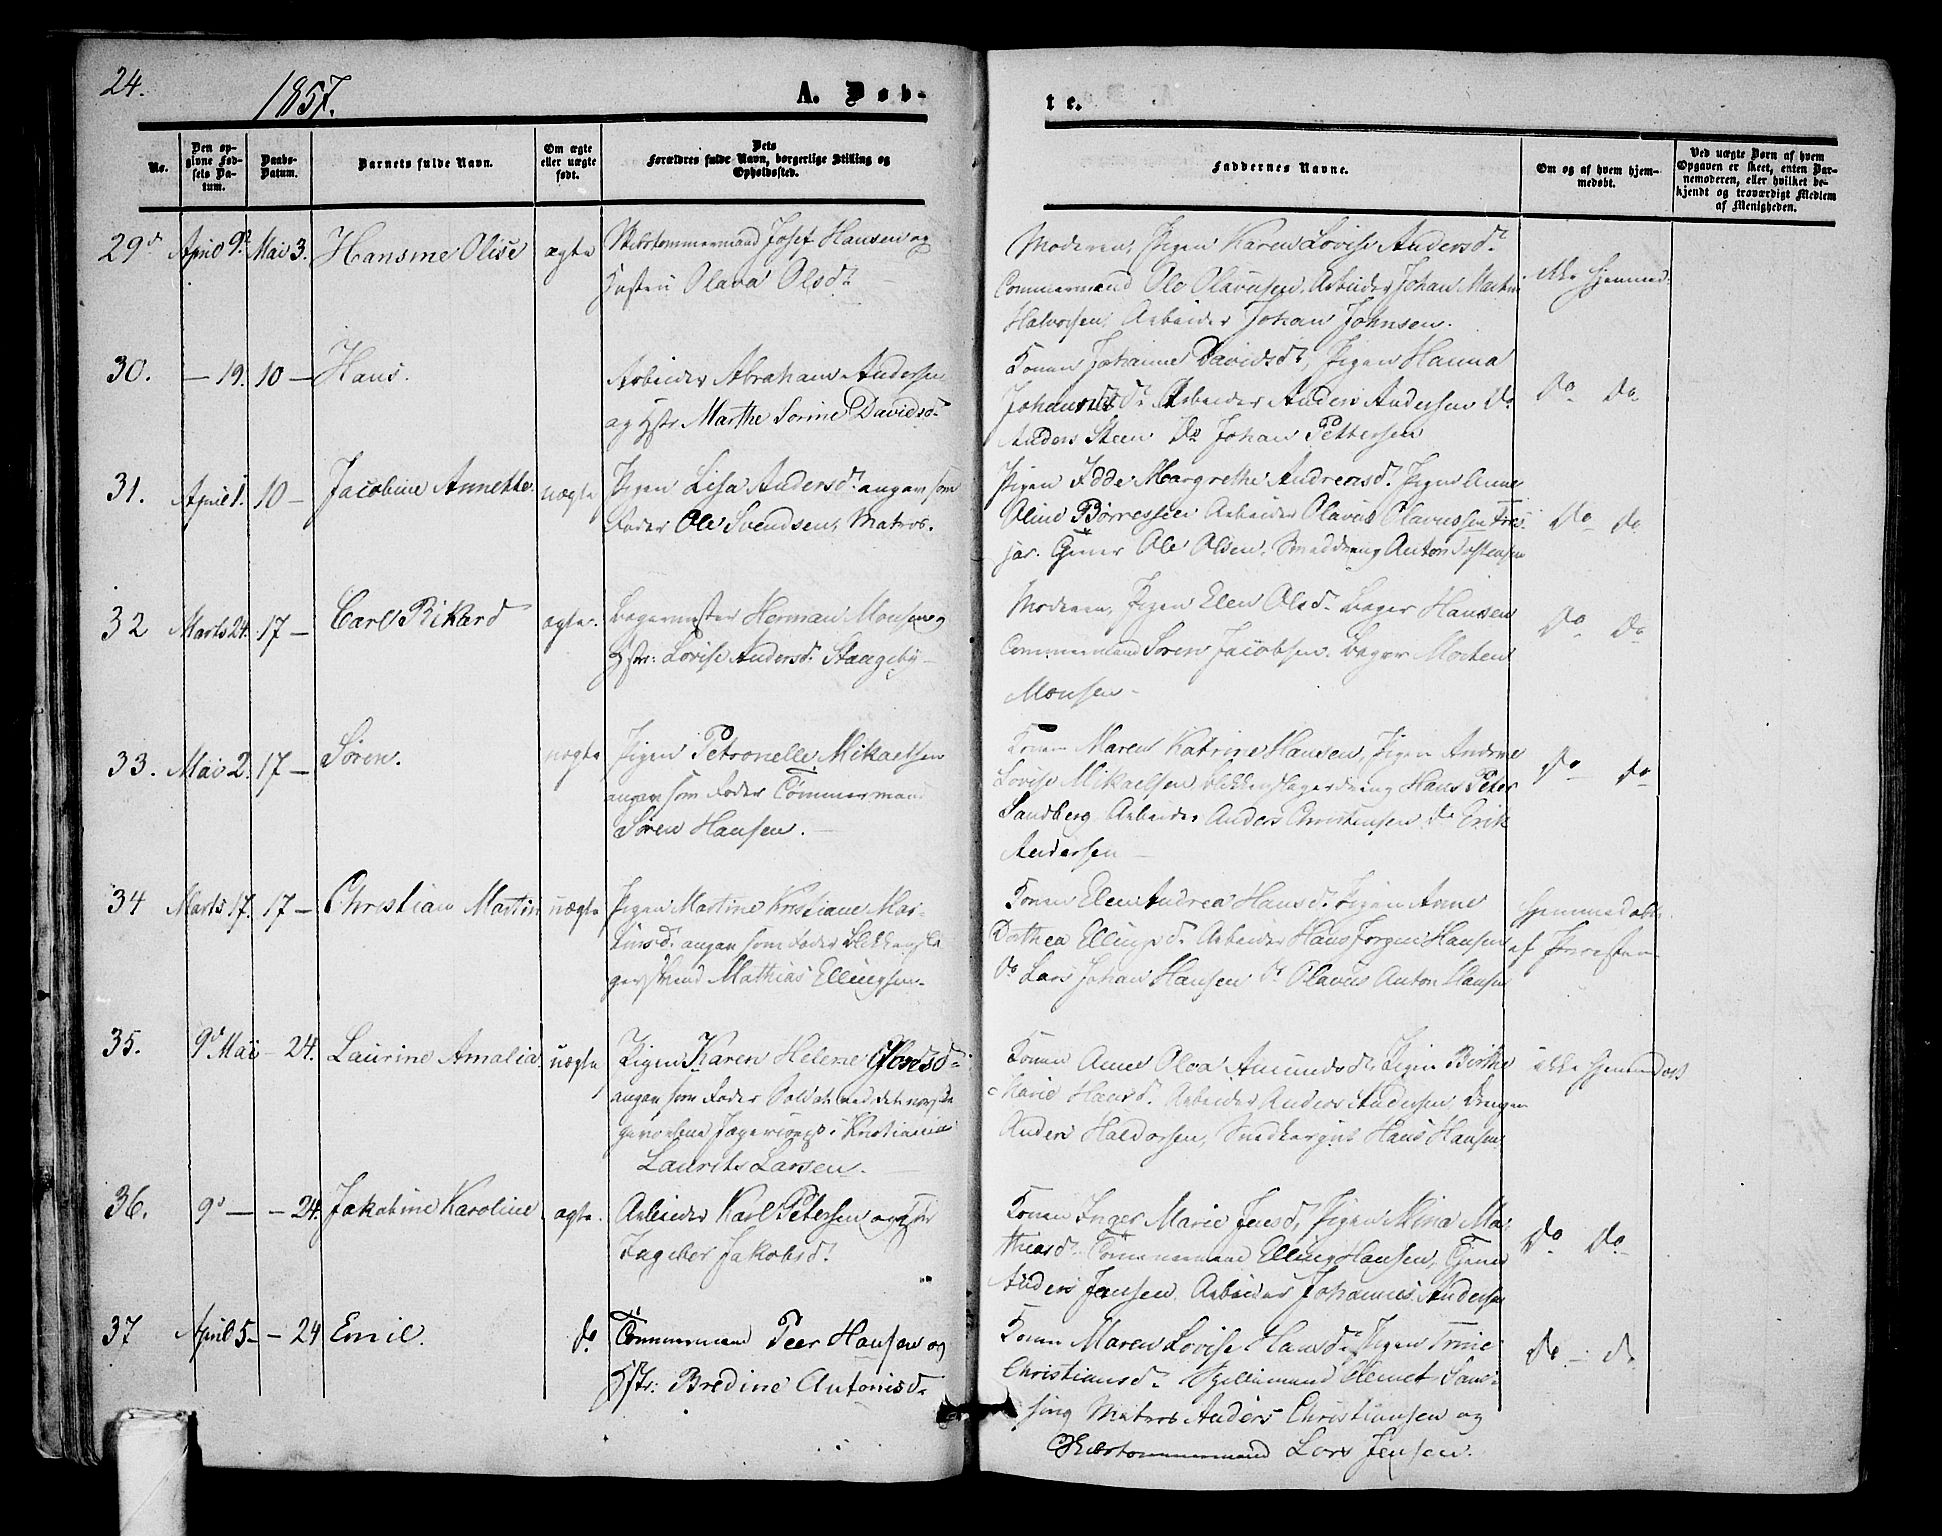 24.
1857.
A. Døb-
te.
No.
Den op-
givne Fød-
sels Da-
tum.
Daabs-
Datum.
Barnets fulde Navn.
Om ægte
eller uægte
født.
Dets
Forældres fulde Navn, borgerlige Stilling og
Opholdssted.
Faddernes Navne.
Om og af hvem hjem-
medøbt.
Ved uægte Børn af hvem
Opgaven er skeet, enten Bar-
nemoderen, eller hvilket be-
kjendt og troværdigt Medlem
af Menigheden.
29 April 9 Mai 3. Hansine Olise ægte Skibstømmermand Josef Hansen og
Hustru Olava Olsd.
Moderen, Pigen Karen Lovise Andersd.
Tømmermand Ole Olavesen, Arbeider Johan Martin
Halvorsen, Arbeider Johan Johnsen.
ikke hjemmed.
30. — 19. 10 — Hans.
Arbeider Abraham Andersen
og Hstr Marthe Sorine Davidsd.
Konen Johanne Davidsd, Pigen Hanna
Johannesd. Arbeider Anders Andersen Do
Anders Steen Do Johan Pettersen
Do Do
31. April 1. 10 — Jacobine Annette uægte Pigen Lisa Andersd. angav som
Fader Ole Svendsen, Matros.
Pigen Edde Margrethe Andreasd. Pigen Anne
Oline Børressen Arbeider Olavus Olavussen
Tjener Ole Olsen, Smeddreng Anton Tostensen
Do do
32 Marts 24. 17 — Carl Rikard ægte. Bagermester Herman Monsen og
Hstr: Lovise Andersd. Stangeby —
Moderen, Pigen Elen Olsd. Bager Hansen
Tømmermand Søren Jacobsen. Bager Morten
Monsen —
Do Do
33. Mai 2. 17 — Søren. uægte Pigen Petronelle Mikaelsen
angav som Fader Tømmermand
Søren Hansen. —
Konen Maren Katrine Hansen, Pigen Andrine
Lovise Mikaelsen, Blikkenslagerdreng Hans Peter
Sandberg, Arbeider Anders Christensen do Erik
Andersen —
Do — do
34 Marts 17. 17 — Christian Martin uægte Pigen Martine Kristiane Mar-
tinsd. angav som Fader Blikkensla-
gersvend Mathias Ellingsen.
Konen Elen Andrea Hansd. Pigen Anne
Dorthea Ellingsd. Arbeider Hans Jørgen Hansen
do Lars Johan Hansen do Olavus Anton Hansen
Hjemmedøbt
af Præsten
35. 9 Mai — 24. Laurine Amalia. uægte Pigen Karen Helene
angav som Fader Soldat ved det norske
Jægercorps i Kristiania
Laurits Larsen. —
Konen Anne Olea Amundsd. Pigen Birthe
Marie Hansd. Arbeider Anders Andersen, Drengen
Anders Haldorsen, Hans Hansen
ikke hjemmedøbt
36. 9 — — 24. Jakobine Karoline ægte. Arbeider Karl Petersen og Hstr
Ingebor Jakobsd.
Konen Inger Marie Jensd, Pigen Mina Ma-
thiasd. Tømmermand Elling Hansen, Tjener
Anders Jensen. Arbeider Johannes Andersen
Do Do
37 April 5 — 24 Emil. do Tømmermand Peer Hansen og
Hstr: Bredine Antonisd.
Konen Maren Lovise Hansd. Pigen Trine
Christiansd. Clemet Lau-
sing Matros Anders Christiansen og
Skibstømmermand Lars Jensen.
do — do